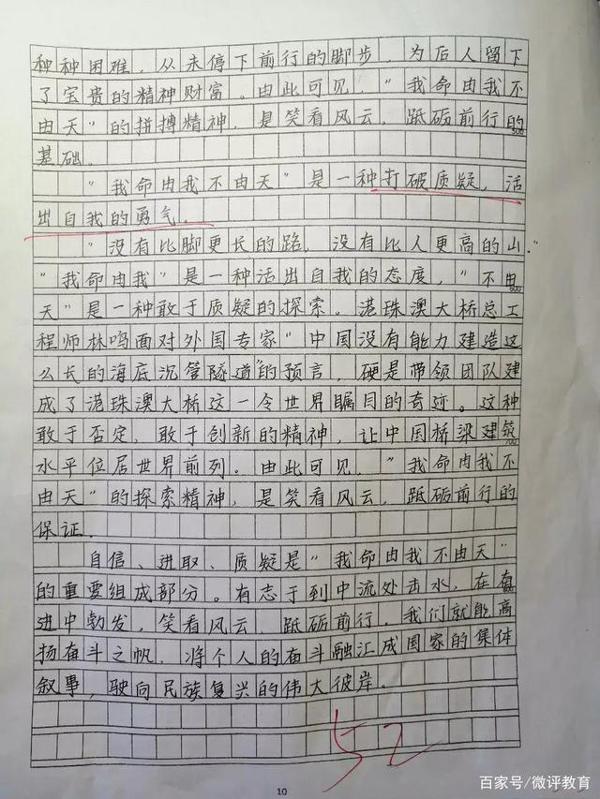 种种困难，从未停下前行的脚步，为后人留下
了宝贵的精神财富。由此可见，“我命由我不
由天”的拼搏精神，是笑看风云，砥砺前行的
基础。
“我命由我不由天”是一种打破质疑，活
出自我的勇气。
“没有比脚更长的路，没有比人更高的山。”
“我命由我”是一种活出自我的态度，“不由
天”是一种敢于质疑的探索。港珠澳大桥总工
程师林鸣面对外国专家“中国没有能力建造这
么长的海底沉管隧道”的预言，硬是带领团队建
成了港珠澳大桥这一令世界瞩目的奇迹。这种
敢于否定，敢于创新的精神，让中国桥梁建筑
水平位居世界前列。由此可见，“我命由我不
由天”的探索精神，是笑看风云，砥砺前行的
保证。
自信、进取、质疑是“我命由我不由天”
的重要组成部分。有志于到中流处击水，在奋
进中勃发，笑看风云，砥砺前行，我们就能高
扬奋斗之帆，将个人的奋斗融汇成国家的集体
叙事，驶向民族复兴的伟大彼岸。
52
10
百家号/微评教育